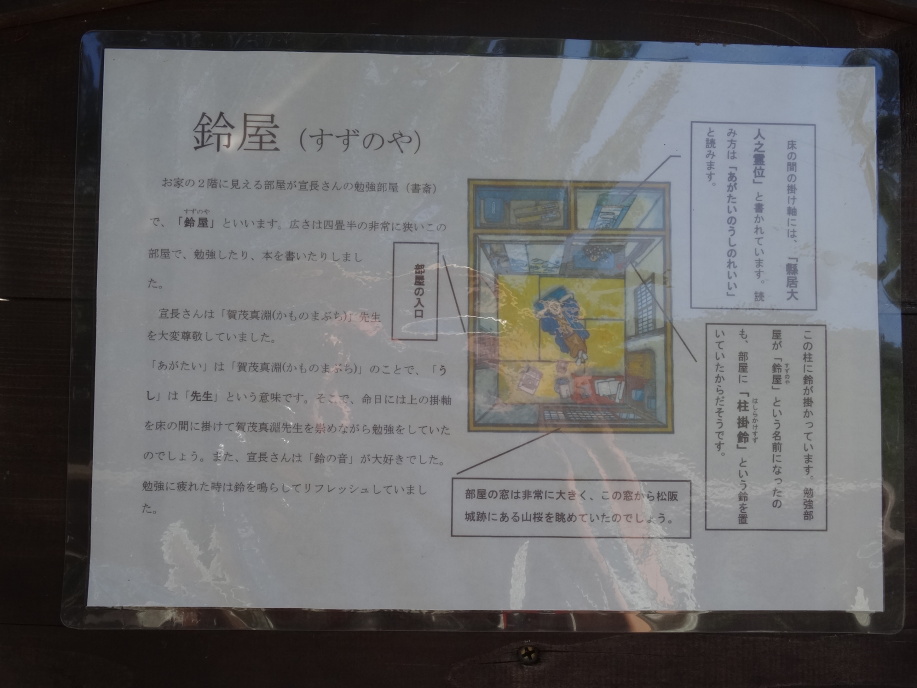 鈴屋（すずのや）
お家の２階に見える部屋が宣長さんの勉強部屋（書斎）
すずのや
で、「鈴屋」といいます。広さは四畳半の非常に狭いこの
部屋で、勉強したり、本を書いたりしまし
た。
宣長さんは「賀茂真淵(かものまぶち)」先生
を大変尊敬していました。
「あがたい」は「賀茂真淵(かものまぶち)」のことで、「う
し」は「先生」という意味です。そこで、命日には上の掛軸
を床の間に掛けて賀茂真淵先生を崇めながら勉強をしていた
のでしょう。また、宣長さんは「鈴の音」が大好きでした。
勉強に疲れた時は鈴を鳴らしてリフレッシュしていまし
た。
部屋の入口
床の間の掛け軸には、「縣居大
人之霊位」と書かれています。読
み方は「あがたいのうしのれいい」
と読みます。
この柱に鈴が掛かっています。勉強部
すずのや
屋が「鈴屋」という名前になったの
はしらかけすず
も、部屋に「柱掛鈴」という鈴を置
いていたからだそうです。
部屋の窓は非常に大きく、この窓から松阪
城跡にある山桜を眺めていたのでしょう。